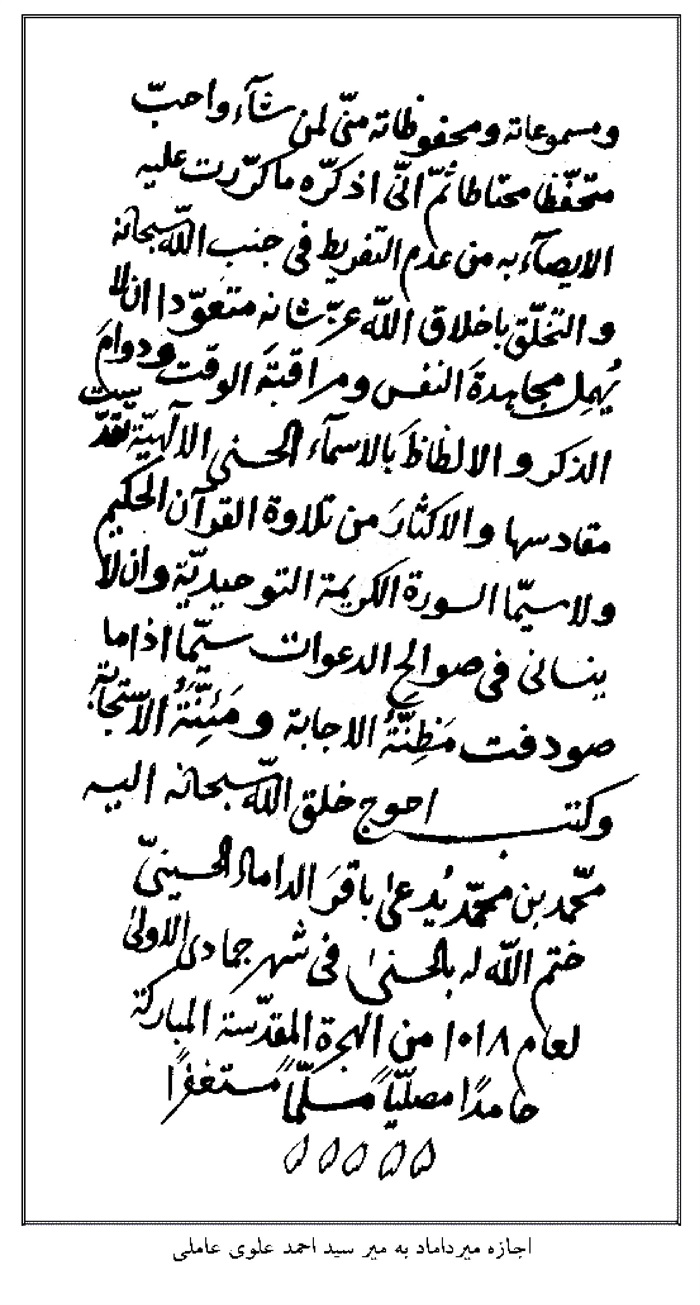 ومسموعاته ومحفوظاته منّي لمن شآء واحبّ
متحفّظا محتاطا ثمّ انّي اذكّره ما كرّرت عليه
الايصآء به من عدم التفريط في جنب اللّه سبحانه
والتخلّق باخلاق اللّه عزّ شانه متعوّدا ان لا
يُهمل مجاهدةَ النفس ومراقبتَه الوقت ودوامَ
الذكر والالظاظَ بالاسمآء الحسنى الالٓهيّة تقدّست
مقادسها والاكثارَ من تلاوة القرآن الحكيم
ولا سيّما السورة الكريمة التوحيديّة وان لا
ينساني في صوالح الدعوات سيّما اذا ما
صودفت مَظِنّةُ الاجابة ومَئِنَّةُ الاستجابة
وكتب احوج خلق اللّه سبحانه اليه
محمّد بن محمّد يُدعى باقرَ الداماد الحسينيّ
ختم اللّه له بالحسنى في شهر جمادى الاولى
لعام ١٠١٨ من الهجرة المقدّسة المباركة
حامدًا مصلّيًا مسلّمًا مستغفرًا
اجازه میرداماد به میر سید احمد علوی عاملی